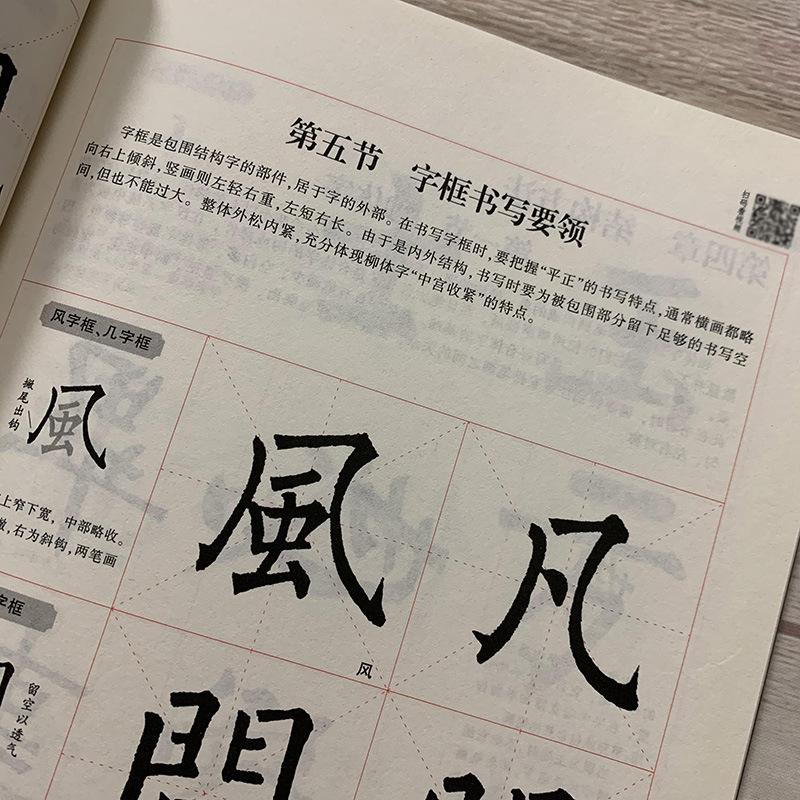 第五节 字框书写要领
扫码看视频
字框是包围结构字的部件，居于字的外部。在书写字框时，要把握“平正”的书写特点，通常横画都略
向右上倾斜，竖画则左轻右重，左短右长。由于是内外结构，书写时要为被包围部分留下足够的书写空
间，但也不能过大。整体外松内紧，充分体现柳体字“中宫收紧”的特点。
风字框、几字框
撇尾出钩
風
上窄下宽，中部略收。
撇，右为斜钩，两笔画
風
风
凡
字框
留空以透气
間